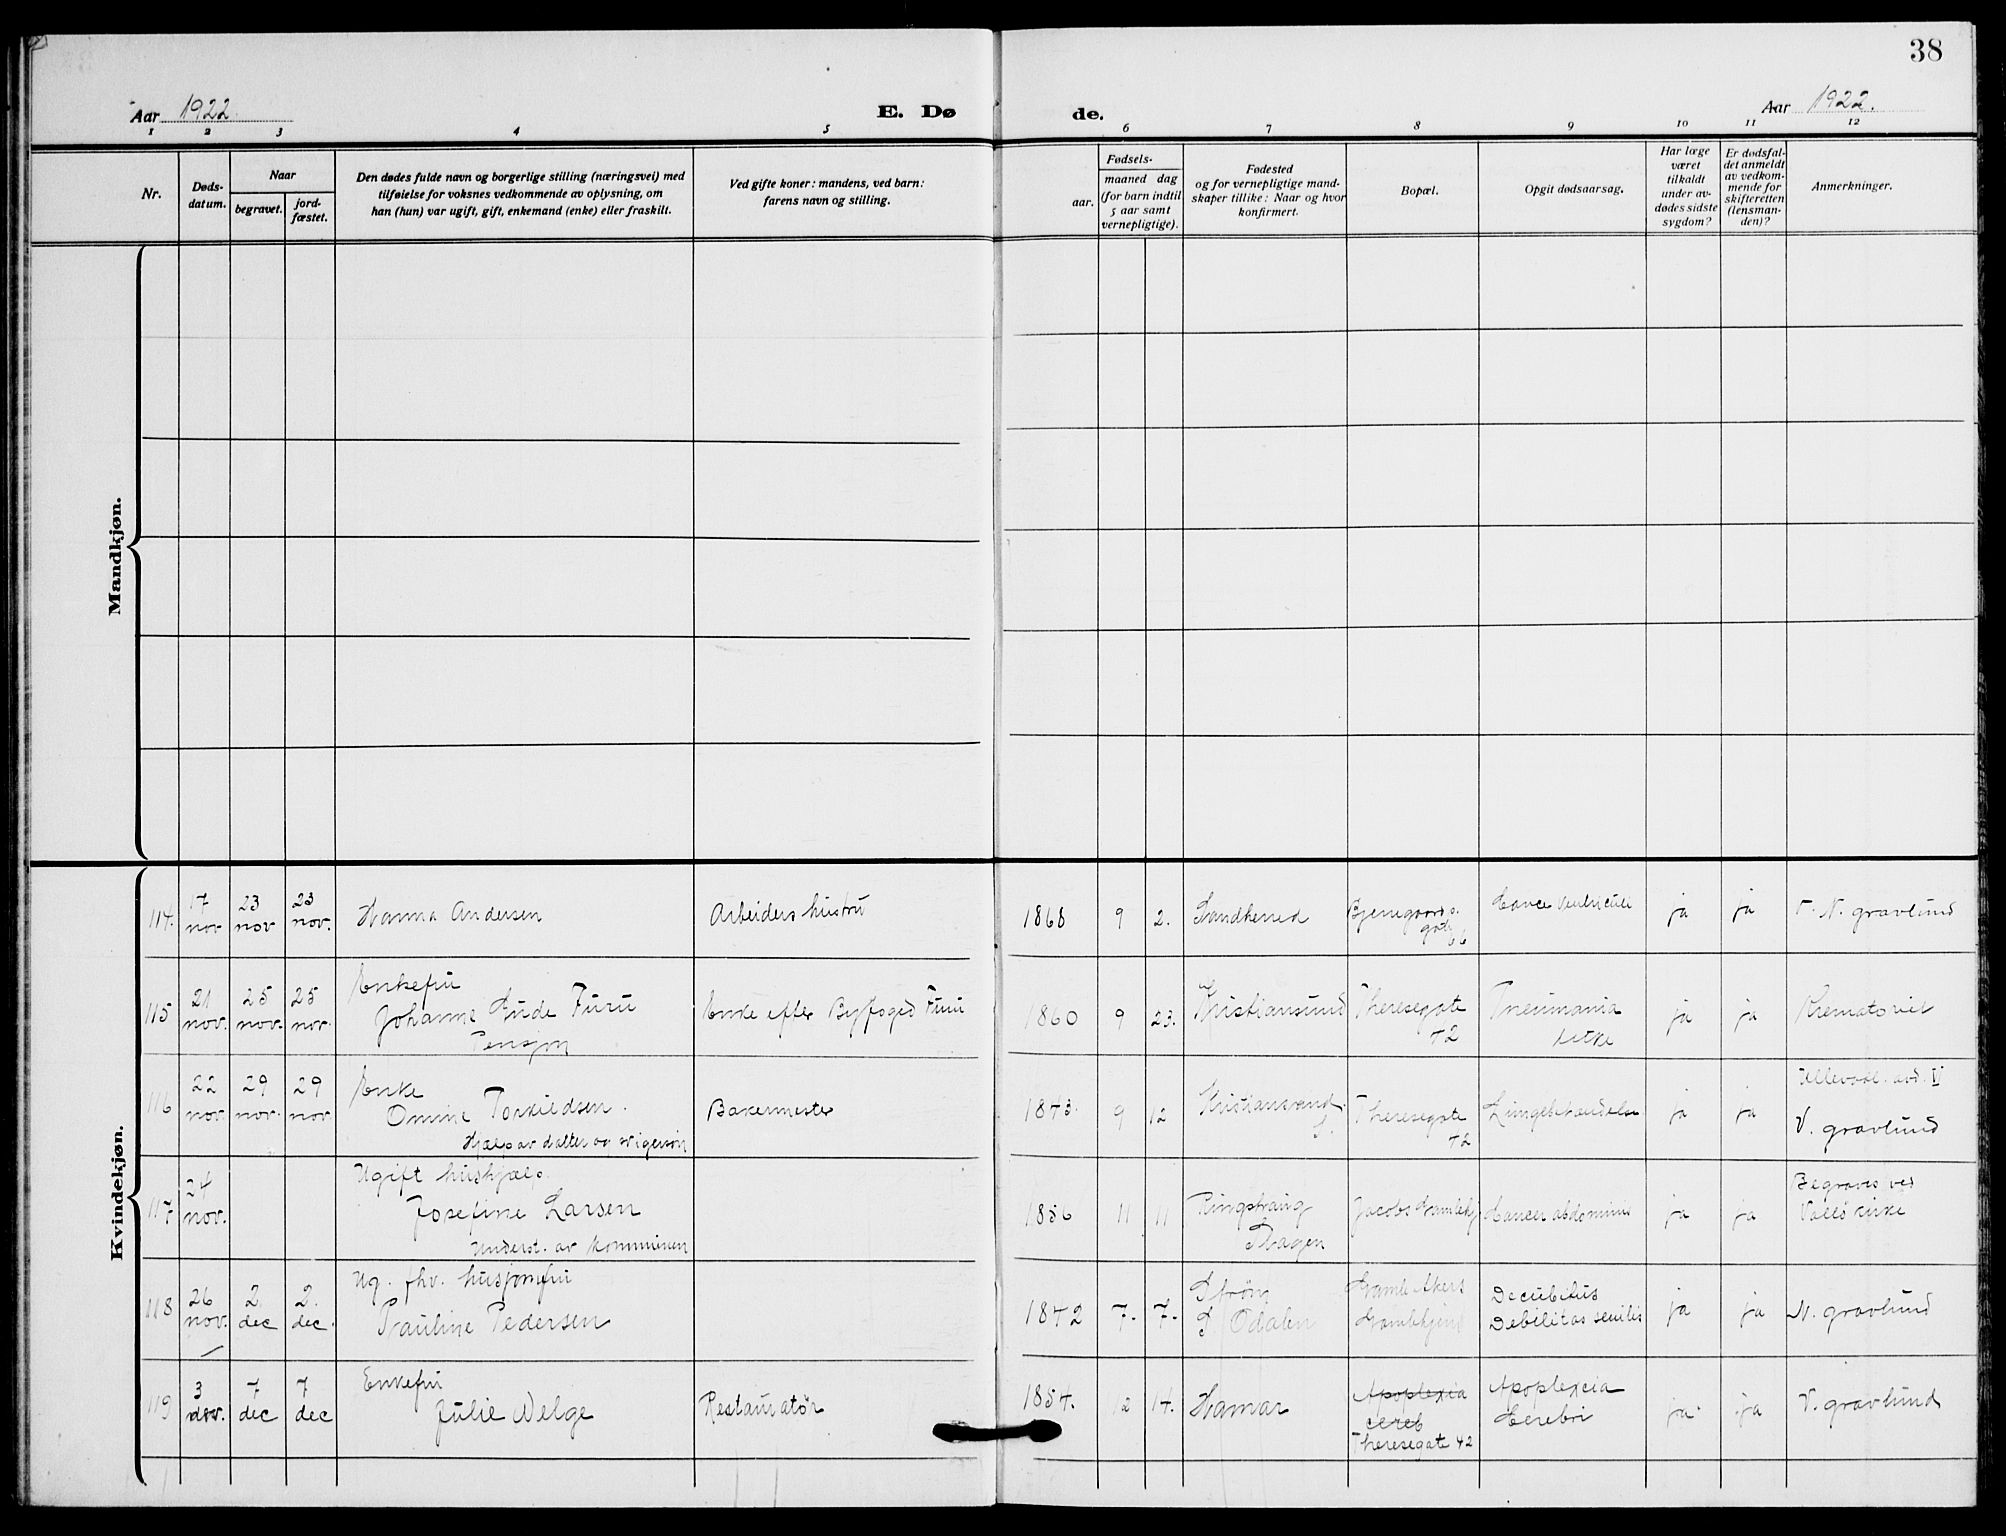 38
Aar 1922.
E. Dø
de.
Aar 1922.
1 2 3 4 5 6 7 8 9 10 11 12
Nr.
Døds-
datum.
Naar
begravet.
jord-
fæstet.
Den dødes fulde navn og borgerlige stilling (næringsvei) med
tilføielse for voksnes vedkommende av oplysning, om
han (hun) var ugift, gift, enkemand (enke) eller fraskilt.
Ved gifte koner: mandens, ved barn:
farens navn og stilling.
Fødsels-
aar.
maaned dag
(for barn indtil
5 aar samt
vernepligtige).
Fødested
og for vernepligtige mand-
skaper tillike: Naar og hvor
konfirmert.
Bopæl.
Opgit dødsaarsag.
Har læge
været
tilkaldt
under av-
dødes sidste
sygdom?
Er dødsfal-
det anmeldt
av vedkom-
mende for
skifteretten
(lensman-
den)?
Anmerkninger.
Mandkjøn.
Kvindekjøn.
114.
17
nov
23
nov
23
nov.
Hanna Andersen
Arbeiders hustru
1868
9
2.
Sandhered
Cancer Ventriculi
ja
ja
V. N. gravlund
115
21
nov.
25
nov.
25
nov.
Enkefru
Johanne Aude Furu
Pensjon
Enke efter Byfoged Furu
1860
9
23.
Kristiansund
Theresegate
42
Pneumonia
ja
ja
Krematoriet
116
22
nov
29
nov.
29
nov
Enke
Omine Torkildsen.
Hjælp av datter og svigersøn
Bakermester
1843
9
12
Kristiansand
S.
Theresegate
42
Lungebetændelse
ja
ja
Ullevaal. avd. V
V. gravlund
117
24
nov.
Ugift hushjælp.
Josefine Larsen
Underst. av kommunen
1856
11
11
Cancer abdominis
ja
ja
Begraves ved
kirke
118
26
nov.
2.
dec
2.
dec.
Ug. fhv. husjomfru
Pauline Pedersen
1842
7.
7.
S Odalen
Gamle Akers
Gamlehjem
Decubitus
Debilitas senilis
ja
ja
N. gravlund
119
3
7
dec
7
dec
Enkefru
Julie Welge
Restauratør
1854.
12
14.
Hamar
Apoplexia
cereb
Theresegate 42
Apoplexia
Cerebri
ja
ja
V. gravlund